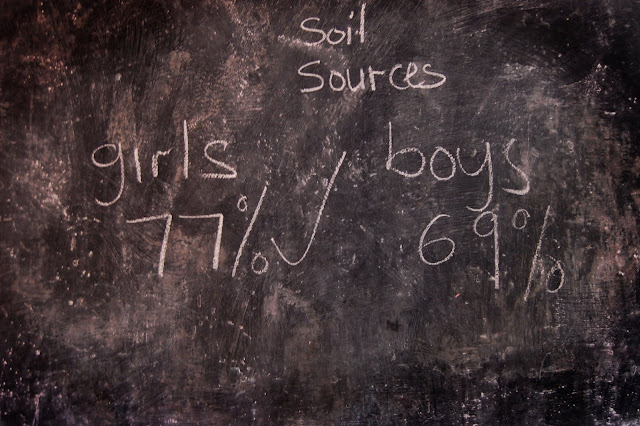 Soil
Sources
girls boys
77% ✓ 69%